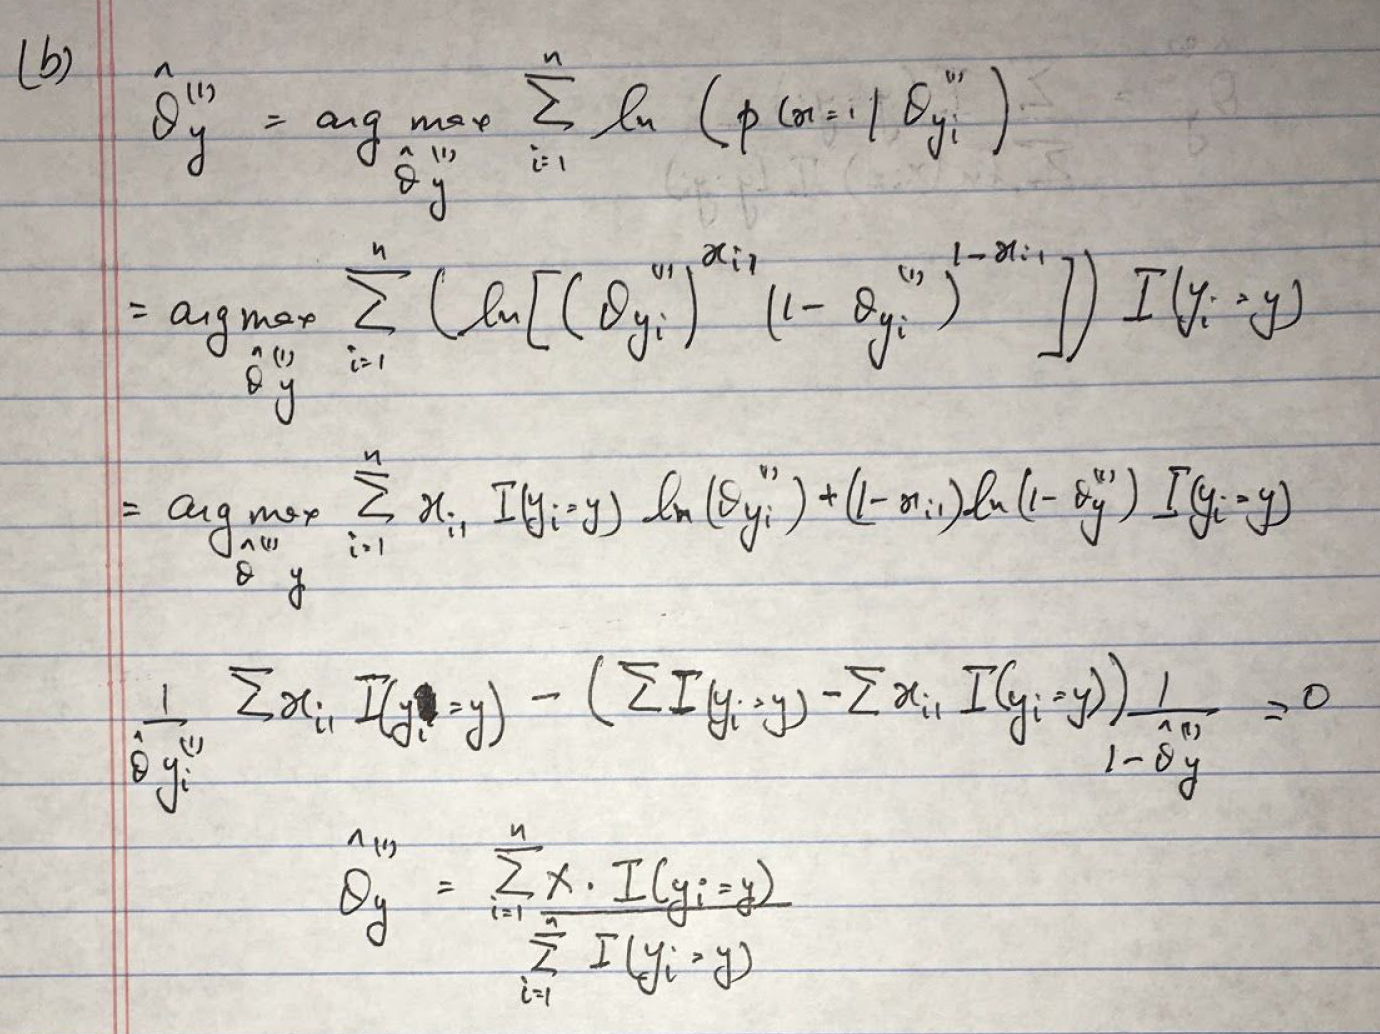 (b) θ̂_y^(1) = arg max_{θ̂_y^(1)} Σ_{i=1}^{n} ln (p(x=i | θ_{y_i}^(1))
= arg max_{θ̂_y^(1)} Σ_{i=1}^{n} (ln[(θ_{y_i}^(1))^{x_{i1}} (1 - θ_{y_i}^(1))^{1-x_{i1}}]) I(y_i = y)
= arg max_{θ̂_y^(1)} Σ_{i=1}^{n} x_{i1} I(y_i = y) ln(θ_{y_i}^(1)) + (1 - x_{i1}) ln(1 - θ_y^(1)) I(y_i = y)
1/θ̂_{y_i}^(1) Σ x_{i1} I(y_i = y) - (Σ I(y_i = y) - Σ x_{i1} I(y_i = y)) 1/(1 - θ̂_y^(1)) = 0
θ̂_y^(1) = Σ_{i=1}^{n} x · I(y_i = y) / Σ_{i=1}^{n} I(y_i = y)